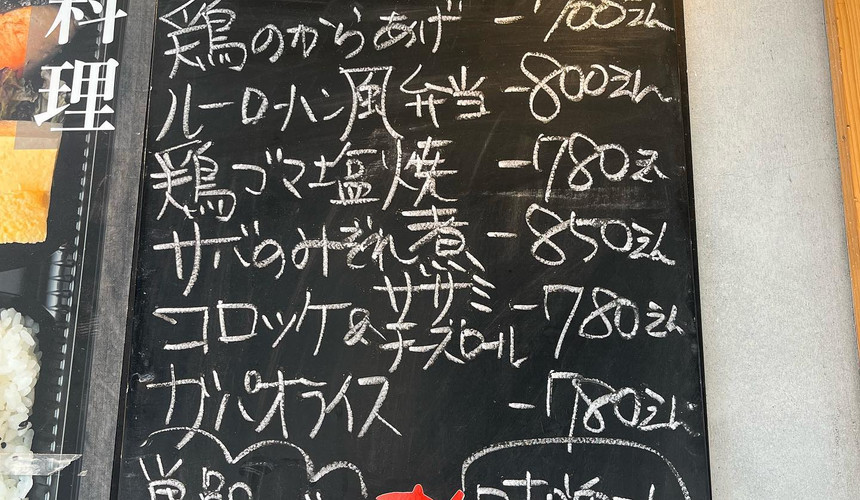 料理
鶏のからあげ -700えん
ルーローハン風弁当 -800えん
鶏ゴマ塩焼 -780えん
サバのみぞれ煮 -850えん
コロッケ&ササミチーズロール -780えん
ガパオライス -780えん